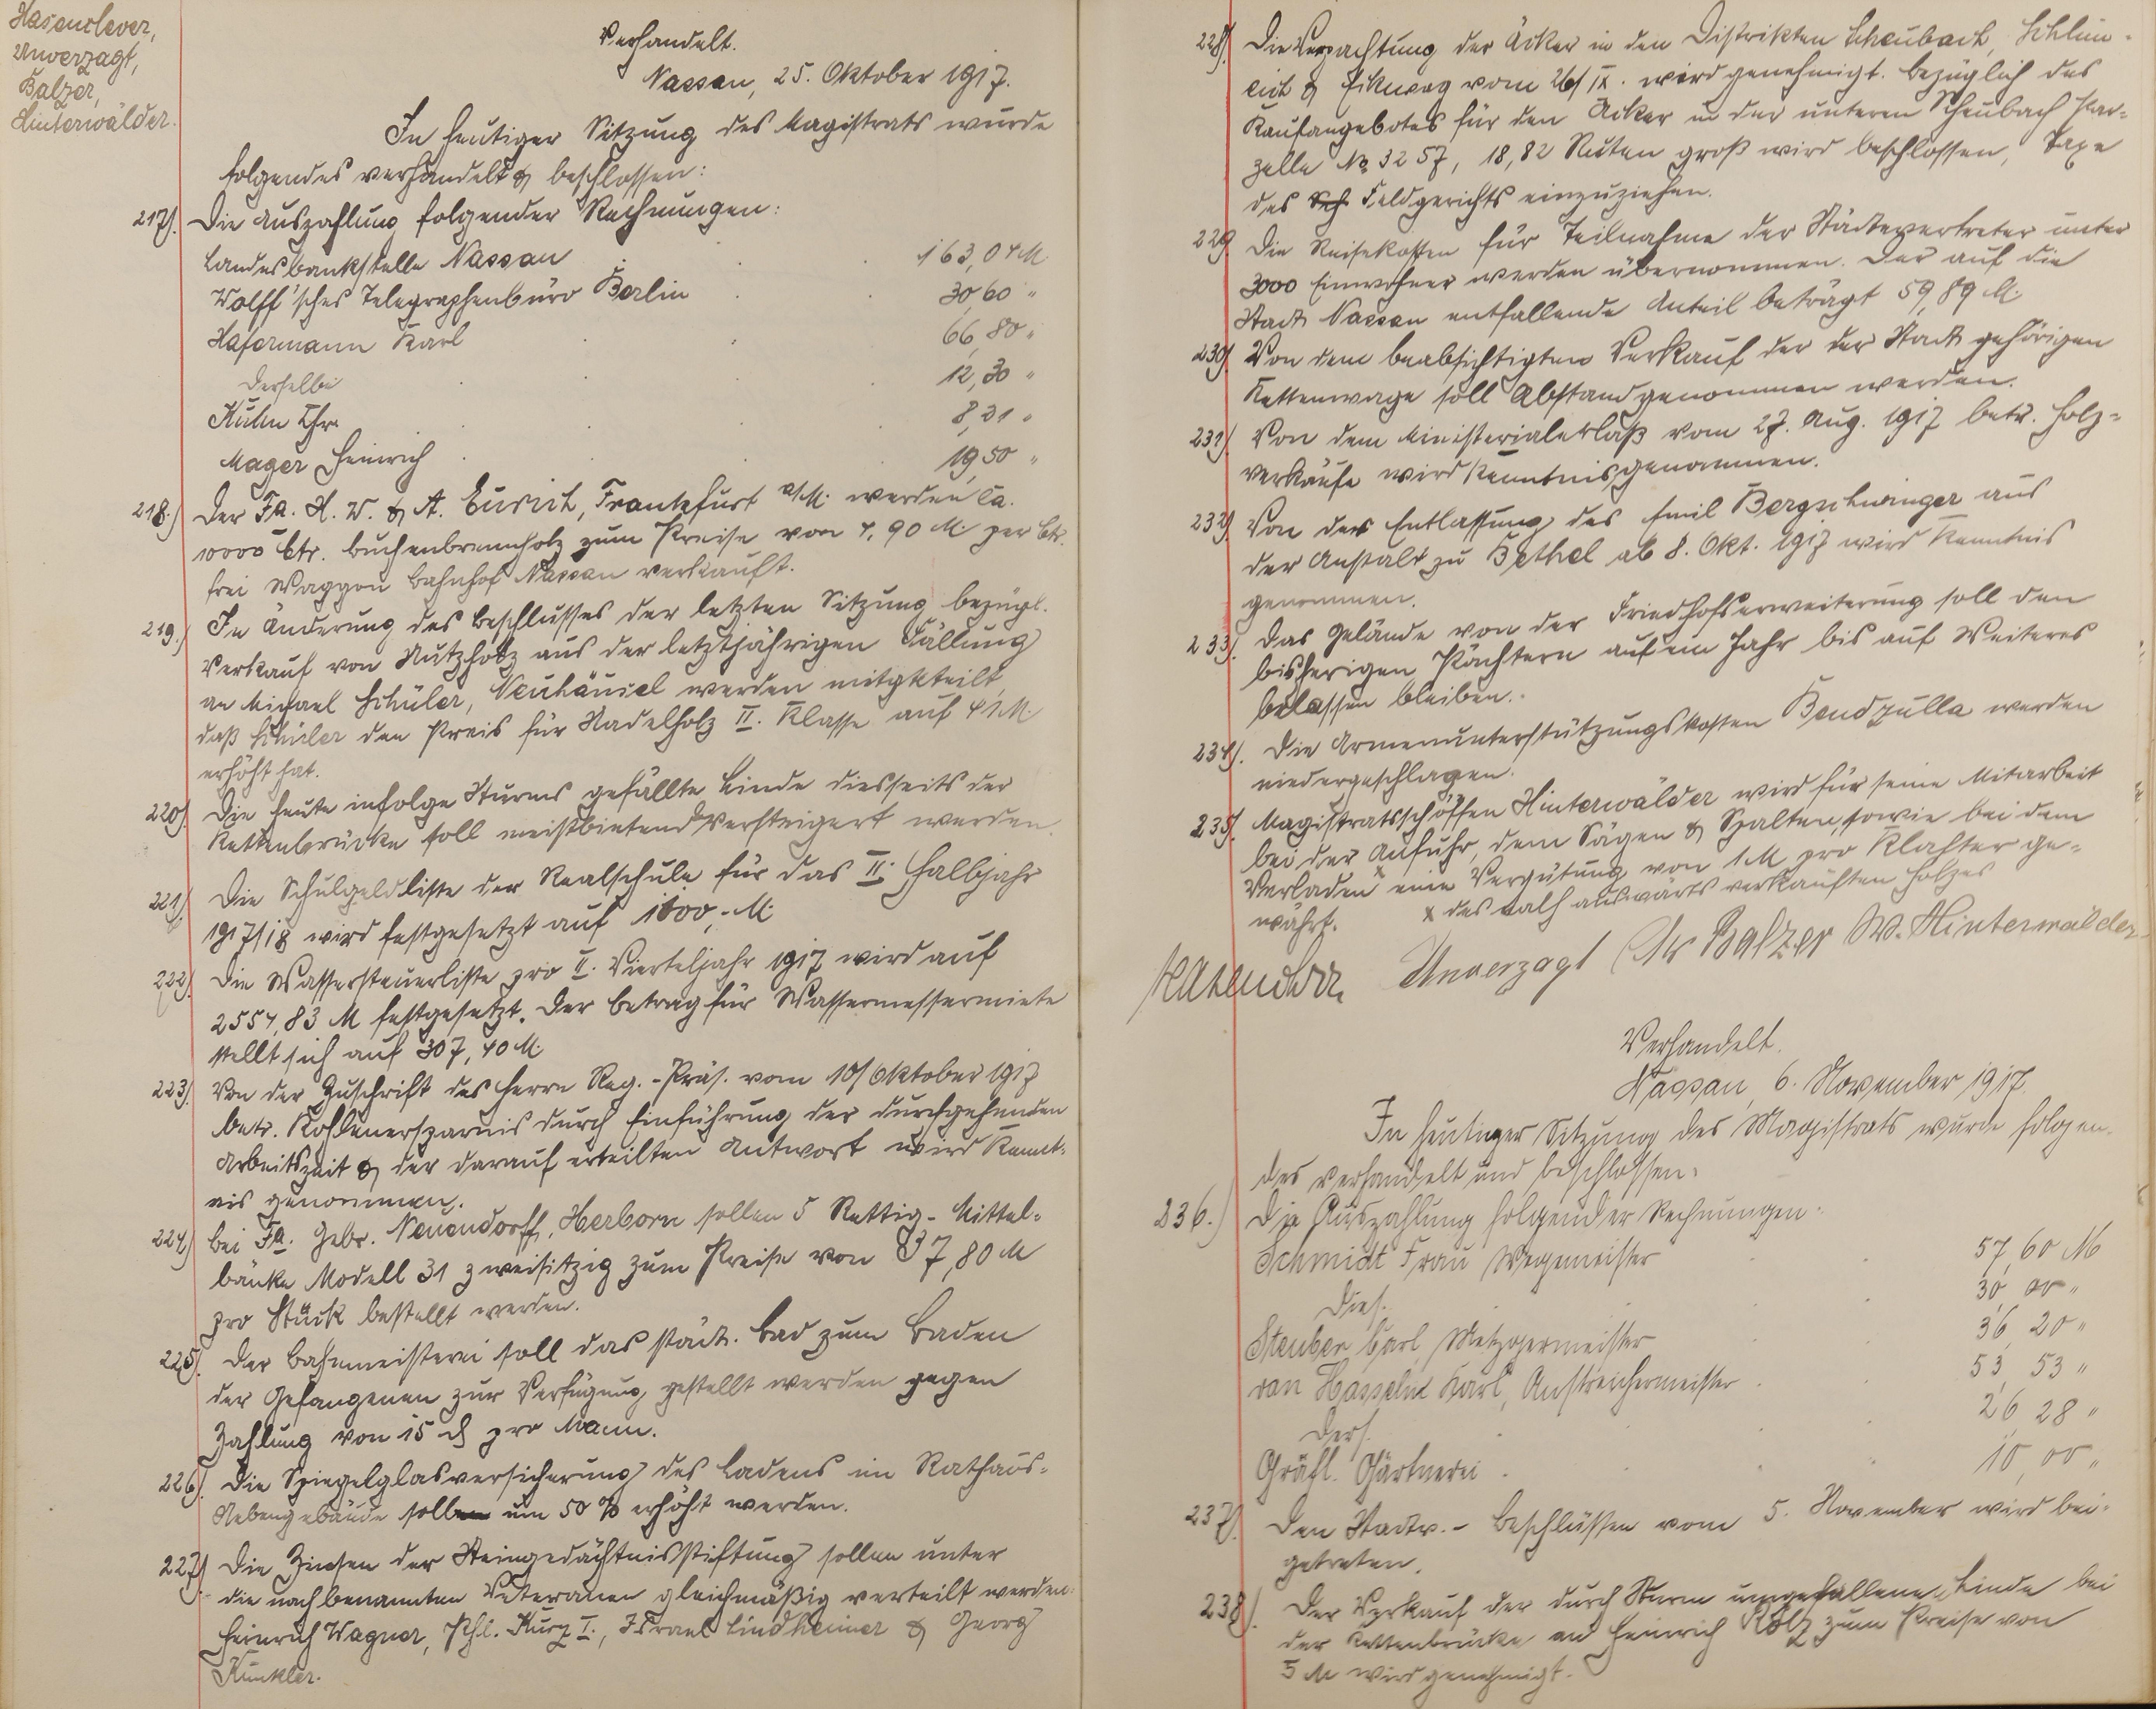 Hasenclever,
Unverzagt,
Balzer,
Hinterwälder.
Verhandelt.
Nassau, 25. Oktober 1917.
In heutiger Sitzung des Magistrats wurde
folgendes verhandelt & beschlossen:
217). Die Auszahlung folgender Rechnungen:
Landesbankstelle Nassau 163,04 M
Wolff'sches Telegraphenbüro Berlin 30,60 "
Hafermann Karl 66,80 "
Derselbe 12,30 "
Kuhn Chr. 8,31 "
Mager Heinrich 19,50 "
218.) Der Fa. H. W. & A. Eurich, Frankfurt a/M. werden ca.
10000 Ctr. Buchenbrennholz zum Preise von 4,90 M. per Ctr.
frei Waggon Bahnhof Nassau verkauft.
219.) In Änderung des Beschlusses der letzten Sitzung bezügl.
Verkauf von Nutzholz aus der letztjährigen Fällung
an Michael Schüler, Neuhäusel werden mitgeteilt,
daß Schüler den Preis für Nadelholz II. Klasse auf 41 M
erhöht hat.
220). Die heute infolge Sturms gefällte Linde diesseits der
Kettenbrücke soll meistbietend versteigert werden.
221). Die Schulgeldliste der Realschule für das II. Halbjahr
1917/18 wird festgesetzt auf 1600,- M.
222). Die Wassersteuerliste pro II. Vierteljahr 1917 wird auf
2554,83 M festgesetzt. Der Betrag für Wassermessermiete
stellt sich auf 307,40 M.
223). Von der Zuschrift des Herrn Reg.-Präs. vom 10/Oktober 1917
betr. Kohlenersparnis durch Einführung der durchgehenden
Arbeitszeit & der darauf erteilten Antwort wird Kennt-
nis genommen.
224) Bei Fa. Gebr. Neuendorff, Herborn sollen 5 Rettig-Mittel-
bänke Modell 31 zweisitzig zum Preise von 37,80 M
pro Stück bestellt werden.
225). Der Bahnmeisterei soll das städt. Bad zum Baden
der Gefangenen zur Verfügung gestellt werden gegen
Zahlung von 15 ₰ pro Mann.
226). Die Spiegelglasversicherung des Ladens im Rathaus-
Nebengebäude soll um 50 % erhöht werden.
227) Die Zinsen der Steingedächtnisstiftung sollen unter
die nachbenannten Veteranen gleichmäßig verteilt werden:
Heinrich Wagner, Phl. Kurz I., Israel Lindheimer & Georg
Kunkler.
228). Die Verpachtung der Äcker in den Distrikten Scheubach, Schlim-
eich & vom 26/IX. wird genehmigt. Bezüglich des
Kaufangebotes für den Acker in der unteren Scheubach Par-
zelle № 3257, 18,82 Ruten groß wird beschlossen, Taxe
des Sch Feldgerichts einzuziehen.
229. Die Reisekosten für Teilnahme der Städtevertreter unter
3000 Einwohner werden übernommen. Der auf die
Stadt Nassau entfallende Anteil beträgt 59,89 M.
230) Von dem beabsichtigten Verkauf der der Stadt gehörigen
Kettenwage soll Abstand genommen werden.
231). Von dem Ministerialerlaß vom 27. Aug. 1917 betr. Holz-
verkäufe wird Kenntnis genommen.
232) Von der Entlassung des Emil Bergschwinger aus
der Anstalt zu Bethel ab 8. Okt. 1917 wird Kenntnis
genommen.
233). Das Gelände von der Friedhofserweiterung soll den
bisherigen Pächtern auf ein Jahr bis auf Weiteres
belassen bleiben.
234). Die Armenunterstützungskosten Bendzulla werden
niedergeschlagen.
235). Magistratsschöffen Hinterwälder wird für seine Mitarbeit
bei der Anfuhr, dem Sägen & Spalten, sowie bei dem
Verladen x eine Vergütung von 1 M pro Klafter ge-
währt. x des nach auswärts verkauften Holzes
Hasenclever Unverzagt Chr Balzer W. Hinterwälder
Verhandelt.
Nassau, 6. November 1917.
In heutiger Sitzung des Magistrats wurde folgen-
des verhandelt und beschlossen:
236.) Die Auszahlung folgender Rechnungen:
Schmidt Frau Wegemeister 57,60 M
Dies. 30,00 "
Steuber Carl, Metzgermeister 36,20 "
van Hasselt Karl, Anstreichermeister 53,53 "
Ders. 26,28 "
Gräfl. Gärtnerei 10,00 "
237). Den Stadtv.-Beschlüssen vom 5. November wird bei-
getreten.
238). Der Verkauf der durch Sturm umgefallenen Linde bei
der Kettenbrücke an Heinrich Kölz zum Preise von
5 M wird genehmigt.